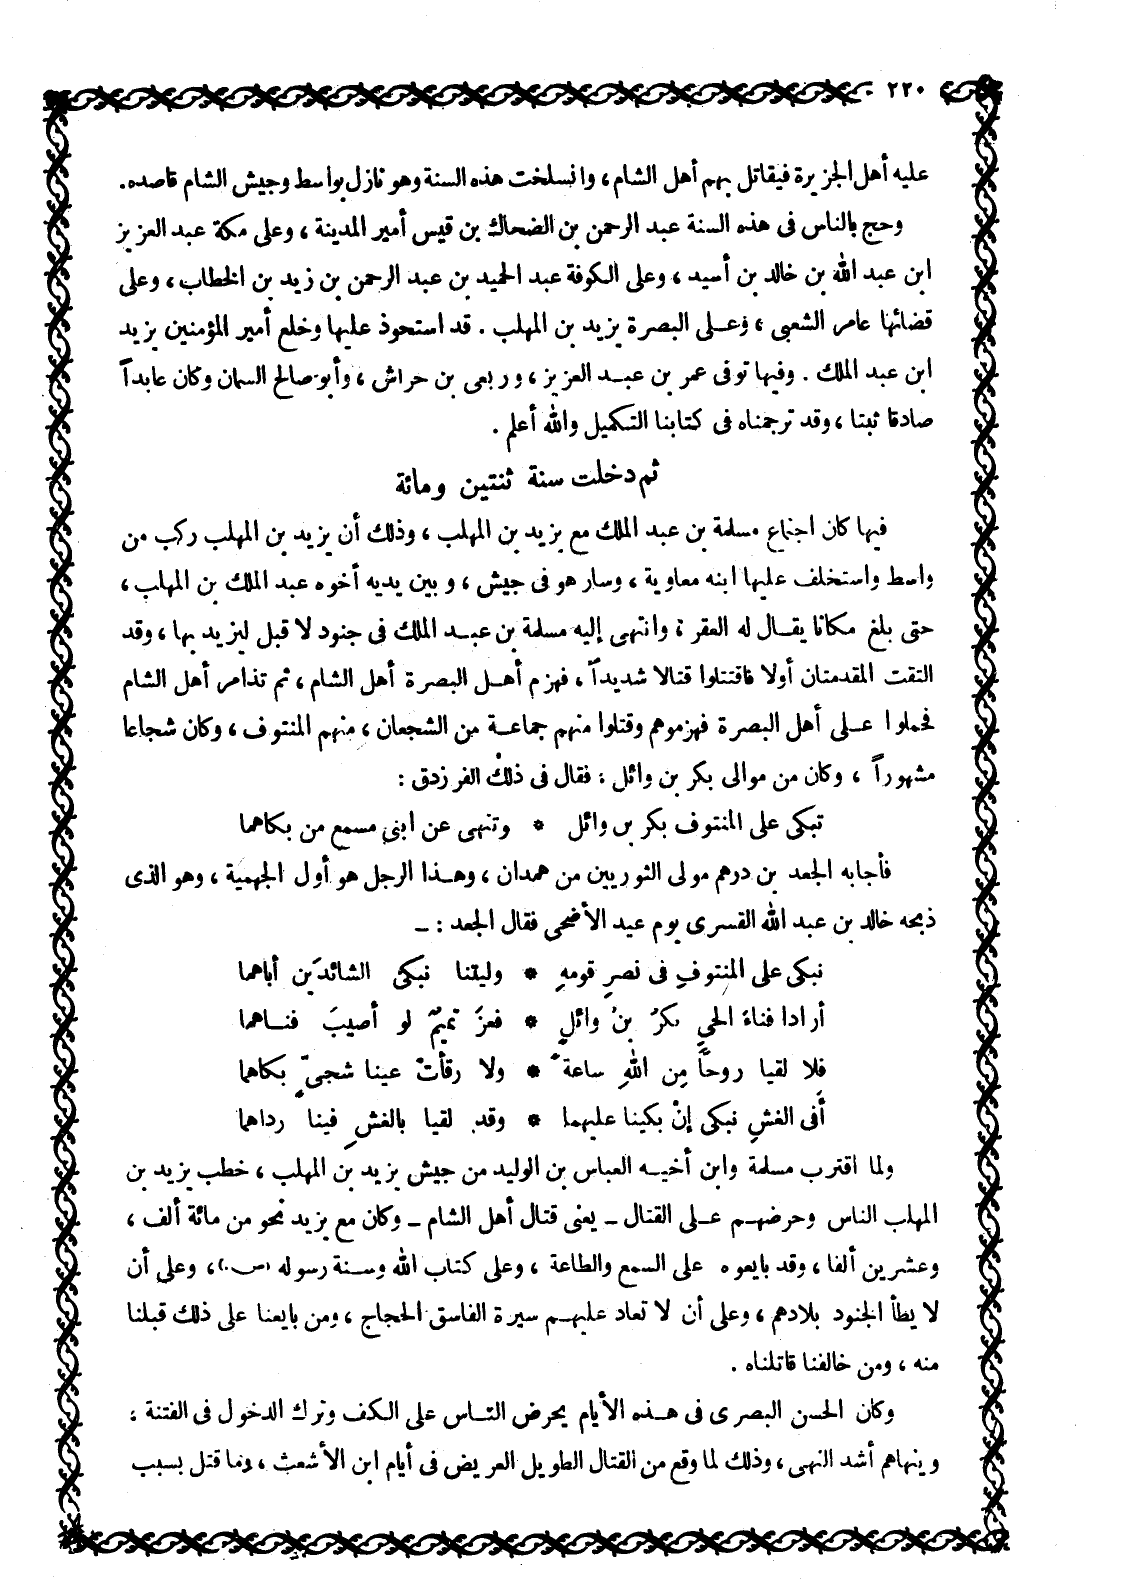 ٢٢٠
عليه أهل الجزيرة فيقاتل بهم أهل الشام، وانسلخت هذه السنة وهو نازل بواسط وجيش الشام قاصده.
وحج بالناس فى هذه السنة عبد الرحمن بن الضحاك بن قيس أمير المدينة ، وعلى مكة عبد العزيز
ابن عبد الله بن خالد بن أسيد ، وعلى الكوفة عبد الحميد بن عبد الرحمن بن زيد بن الخطاب ، وعلى
قضائها عامر الشعبى ، وعلى البصرة يزيد بن المهلب . قد استحوذ عليها وخلع أمير المؤمنين يزيد
ابن عبد الملك . وفيها توفى عمر بن عبد العزيز ، وربعى بن حراش ، وأبو صالح السمان وكان عابداً
صادقا ثبتا ، وقد ترجمناه فى كتابنا التكميل والله أعلم .
ثم دخلت سنة ثنتين ومائة
فيها كان اجتماع مسلمة بن عبد الملك مع يزيد بن المهلب ، وذلك أن يزيد بن المهلب ركب من
واسط واستخلف عليها ابنه معاوية ، وسار هو فى جيش ، وبين يديه أخوه عبد الملك بن المهلب ،
حتى بلغ مكانا يقال له العقر ، وانتهى إليه مسلمة بن عبد الملك فى جنود لا قبل ليزيد بها ، وقد
التقت المقدمتان أولا فاقتتلوا قتالا شديداً ، فهزم أهل البصرة أهل الشام ، ثم تذامر أهل الشام
فحملوا على أهل البصرة فهزموهم وقتلوا منهم جماعة من الشجعان ، منهم المنتوف ، وكان شجاعا
مشهوراً ، وكان من موالى بكر بن وائل ، فقال فى ذلك الفرزدق :
تبكى على المنتوف بكر بن وائل * وتنهى عن ابنى مسمع من بكاهما
فأجابه الجعد بن درهم مولى الثوريين من همدان ، وهذا الرجل هو أول الجهمية ، وهو الذى
ذبحه خالد بن عبد الله القسرى يوم عيد الأضحى فقال الجعد : ـ
نبكى على المنتوفِ فى نصرِ قومهِ * وليتنا نبكى الشائدَين أباهما
أرادا فناءَ الحىِ بكرُ بنُ وائلٍ * فعزَ تميمٌ لو أصيبَ فناهما
فلا لقيا روحاً مِن اللهِ ساعةً * ولا رقأتْ عينا شجىٍّ بكاهما
أفى الغشِ نبكى إنْ بكينا عليهما * وقد لقيا بالغشِ فينا رداهما
ولما اقترب مسلمة وابن أخيه العباس بن الوليد من جيش يزيد بن المهلب ، خطب يزيد بن
المهلب الناس وحرضهم على القتال ـ يعنى قتال أهل الشام ـ وكان مع يزيد نحو من مائة ألف ،
وعشرين ألفا ، وقد بايعوه على السمع والطاعة ، وعلى كتاب الله وسنة رسوله (ص)، وعلى أن
لا يطأ الجنود بلادهم ، وعلى أن لا تعاد عليهم سيرة الفاسق الحجاج ، ومن بايعنا على ذلك قبلنا
منه ، ومن خالفنا قاتلناه .
وكان الحسن البصرى فى هذه الأيام يحرض الناس على الكف وترك الدخول فى الفتنة ،
وينهاهم أشد النهى ، وذلك لما وقع من القتال الطويل العريض فى أيام ابن الأشعث ، وما قتل بسبب